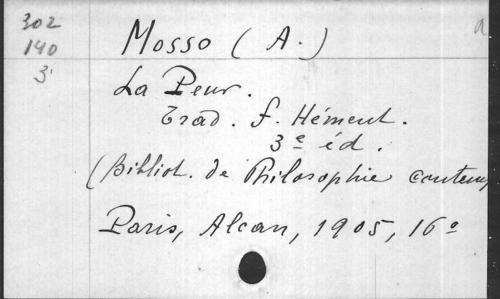 302
140
3
Mosso (A.)
La Peur.
Trad. F. Hément.
3e éd.
(Bibliot. de Philosophie contemp
Paris, Alcan, 1905, 16º
a